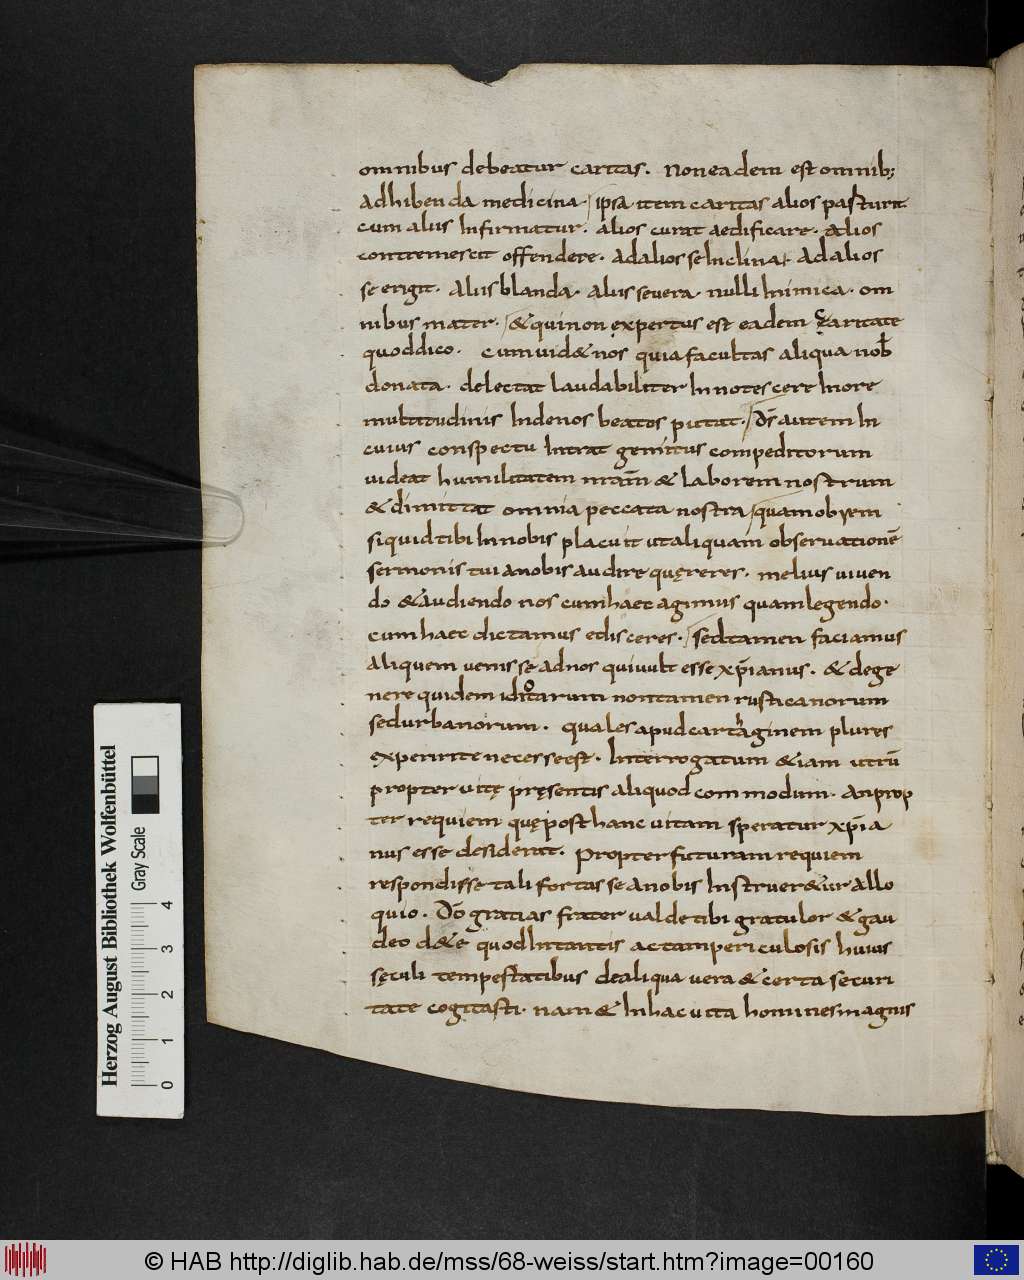 omnibus debeatur caritas. Non eadem est omnib;
adhibenda medicina. ipsa item caritas alios parturit
cum aliis infirmatur. alios curat aedificare. alios
contremescit offendere. ad alios se inclinat. ad alios
se erigit. aliis blanda. aliis severa. nulli inimica. om
nibus mater. & qui non expertus est eadem caritate
quod dico. cum vid& nos quia facultas aliqua nob̄
donata. delectat laudabiliter innotescere in ore
multitudinis inde nos beatos putat. d̄s autem in
cuius conspectu intrat gemitus compeditorum
videat humilitatem nr̄am & laborem nostrum
& dimittat omnia peccata nostra. quam ob rem
si quid tibi in nobis placuit ut aliquam observationē
sermonis tui a nobis audire quęreres. melius viven
do & audiendo nos cum haec agimus quam legendo.
cum haec dictamus edisceres. sed tamen faciamus
aliquem venisse ad nos qui vult esse xp̄ianus. & de ge
nere quidem idiotarum non tamen rusticanorum
sed urbanorum. quales apud carthaginem plures
experiri te necesse est. interrogatum & iam utrū
propter vitę pręsentis aliquod commodum. an prop
ter requiem quę post hanc vitam speratur xp̄ia
nus esse desiderat. propter futuram requiem
respondisse tali fortasse a nobis instruer&ur allo
quio. dō gratias frater valde tibi gratulor & gau
deo d& e quod in tantis ac tam periculosis huius
sęculi tempestatibus de aliqua vera & certa securi
tate cogitasti. nam & in hac vita homines magnis
Herzog August Bibliothek Wolfenbüttel
Gray Scale
0 1 2 3 4
© HAB http://diglib.hab.de/mss/68-weiss/start.htm?image=00160